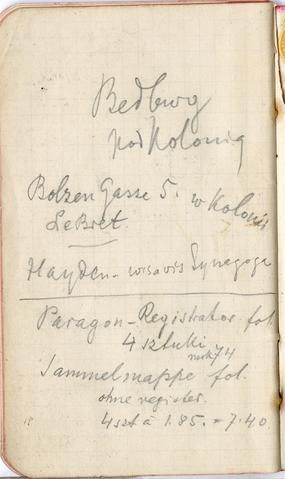 Bedburg
pod Kolonią
Bolzen Gasse 5. w Kolonii
LeBret
Hayden - wisavis Synagoga
Paragon-Registrator fol.
4 sztuki
Sammelmappe fol.
ohne register.
4 szt à 1.85. = 7.40.